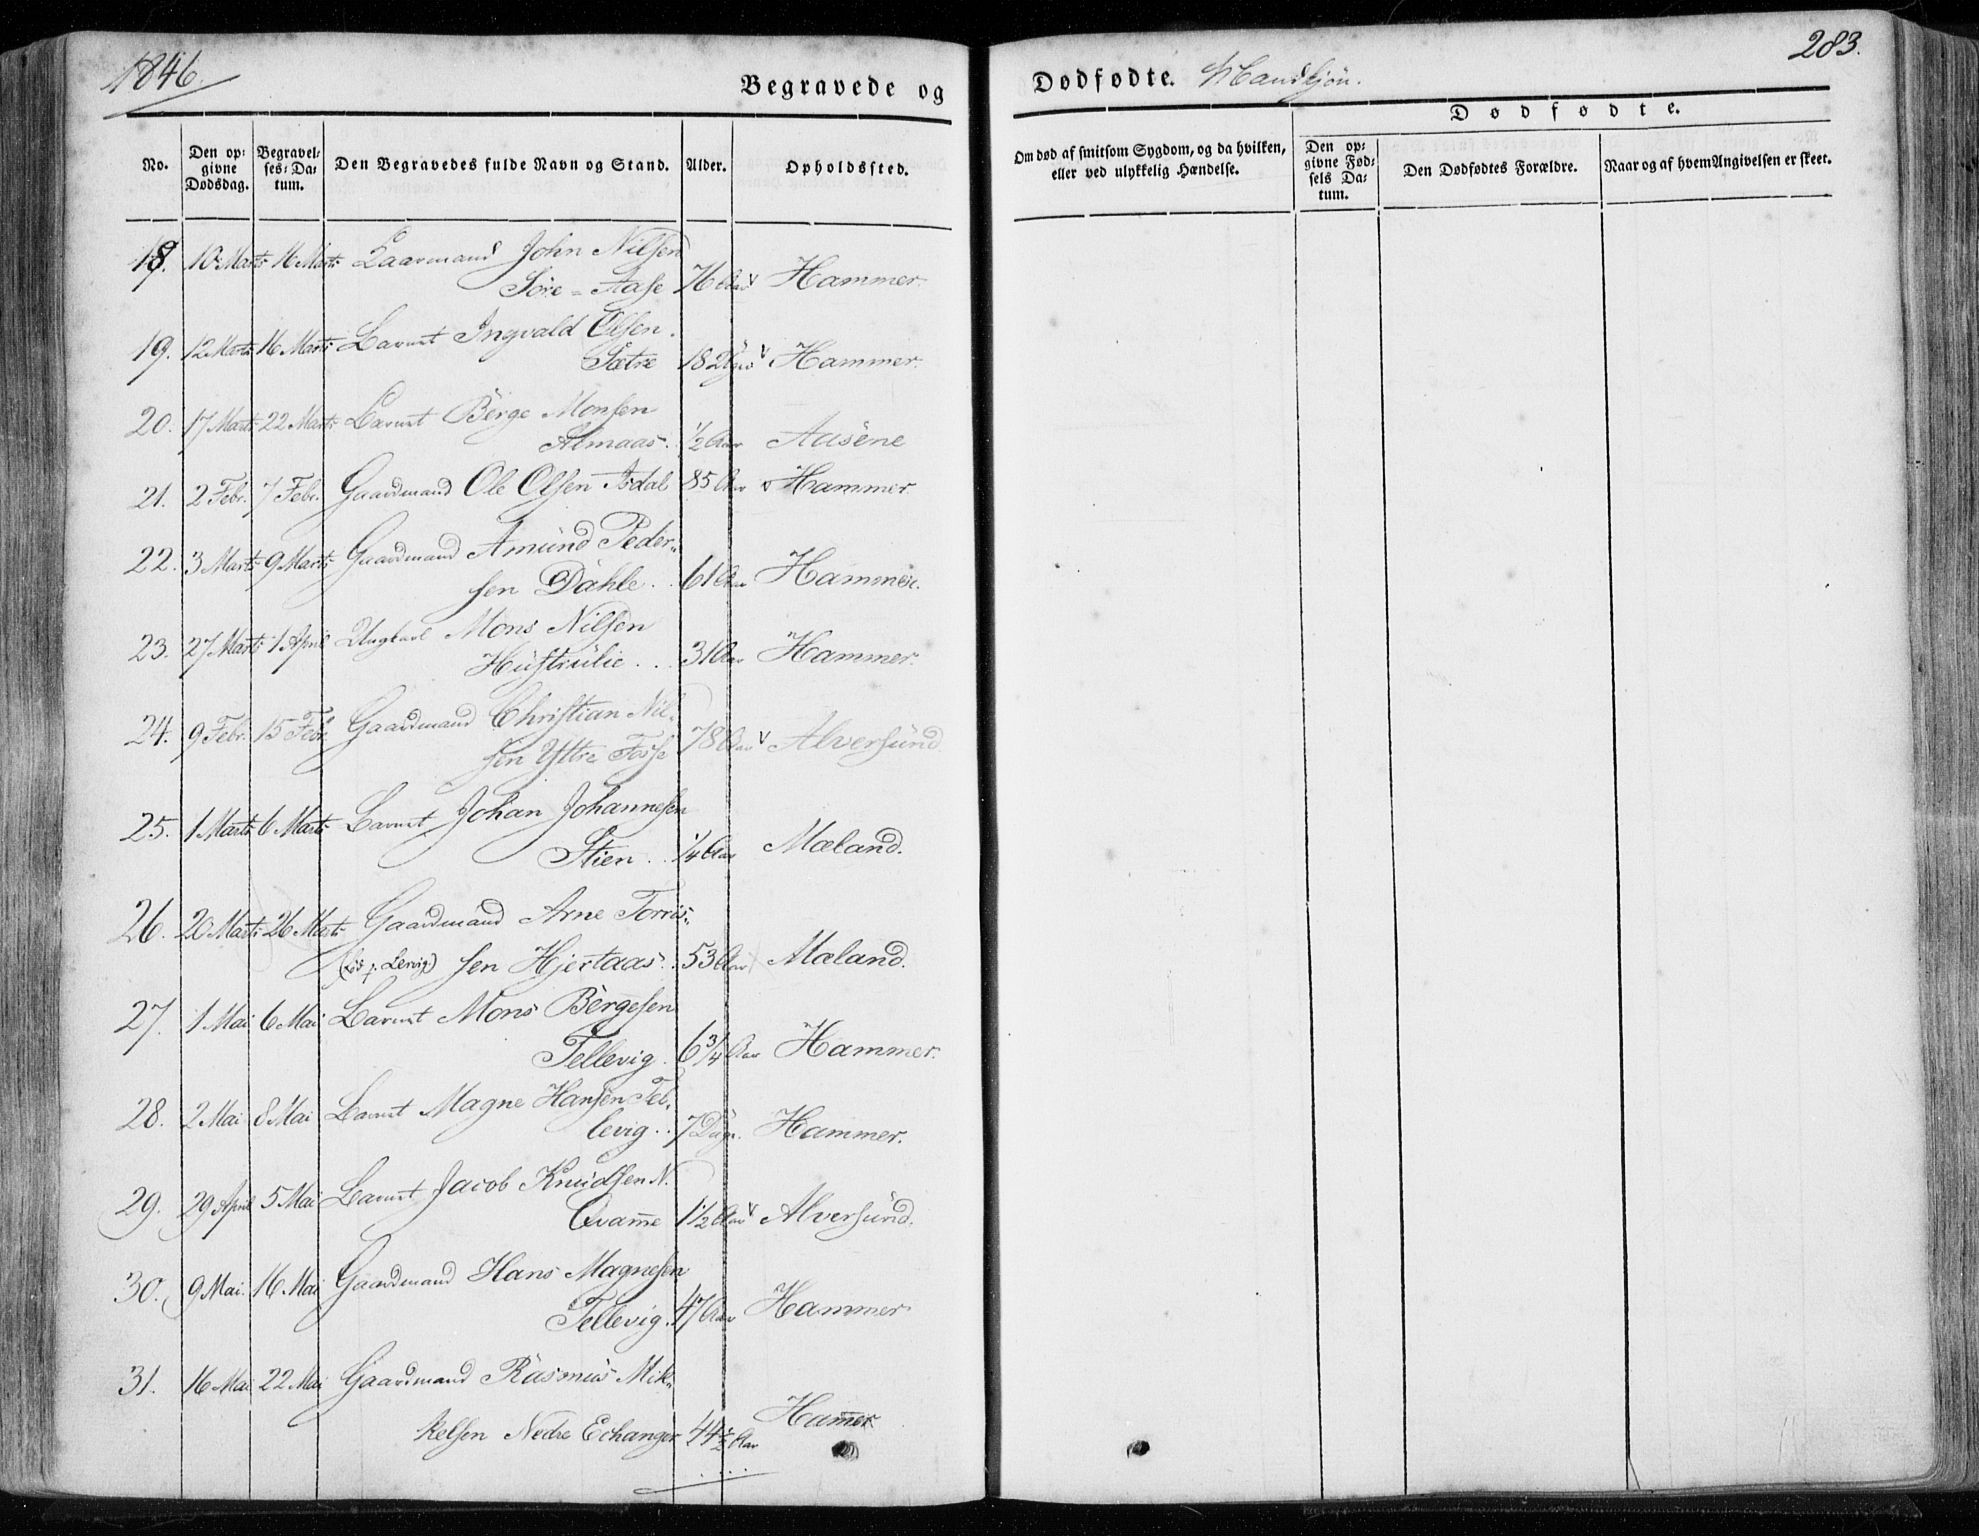 1846.
283.
Begravede og
Dødfødte. Mandkjön.
Dødfødte.
No.
Den op-
givne
Dødsdag.
Begravel-
ses-Da-
tum.
Den Begravedes fulde Navn og Stand.
Alder.
Opholdssted.
Om død af smitsom Sygdom, og da hvilken,
eller ved ulykkelig Hændelse.
Den op-
givne Fød-
sels Da-
tum.
Den Dødfødtes Forældre.
Naar og af hvem Angivelsen er skeet.
18. 10 Marts 16 Marts John Nilsen
Söre-Aase 76 Aar Hammer.
19. 12 Marts 16 Marts Barnet Ingvald Olsen
Sætre 18 Dage Hammer.
20. 17 Marts 22 Marts Barnet Börge Monsen
Almaas. 1/2 Aar Aasene
21. 2 Febr. 7 Febr. Gaardmand Ole Olsen Isdal 85 Aar Hammer
22. 3 Marts 9 Marts Gaardmand Amünd Peder-
sen Dahle. 61 Aar Hammer.
23. 27 Marts 1 April Ungkarl Mons Nilsen
Hüstrülie . . 31 Aar Hammer.
24. 9 Febr. 15 Febr. Gaardmand Christian Nil-
sen Yttre Fosse 78 Aar Alversünd
25. 1 Marts 6 Marts Barnet Johan Johannesen
Stien . . 1/4 Aar Mæland.
26. 20 Marts 26 Marts Gaardmand Arne Torris-
sen Hjertaas . 53 Aar Mæland.
27. 1 Mai 6 Mai Barnet Mons Börgesen
Tellevig . 6 3/4 Aar Hammer.
28. 2 Mai 8 Mai Barnet Magne Hansen Tel-
levig . . 7 Dage. Hammer.
29. 29 April 5 Mai Barnet Jacob Knüdsen N.
Qvam̄e 1 1/2 Aar Alversünd.
30. 9 Mai. 16 Mai Gaardmand Hans Magnesen
Tellevig . 47 Aar Hammer
31. 16 Mai 22 Mai Gaardmand Rasmüs Mik-
kelsen Nedre Echanger 44 1/2 Aar Ham̄er